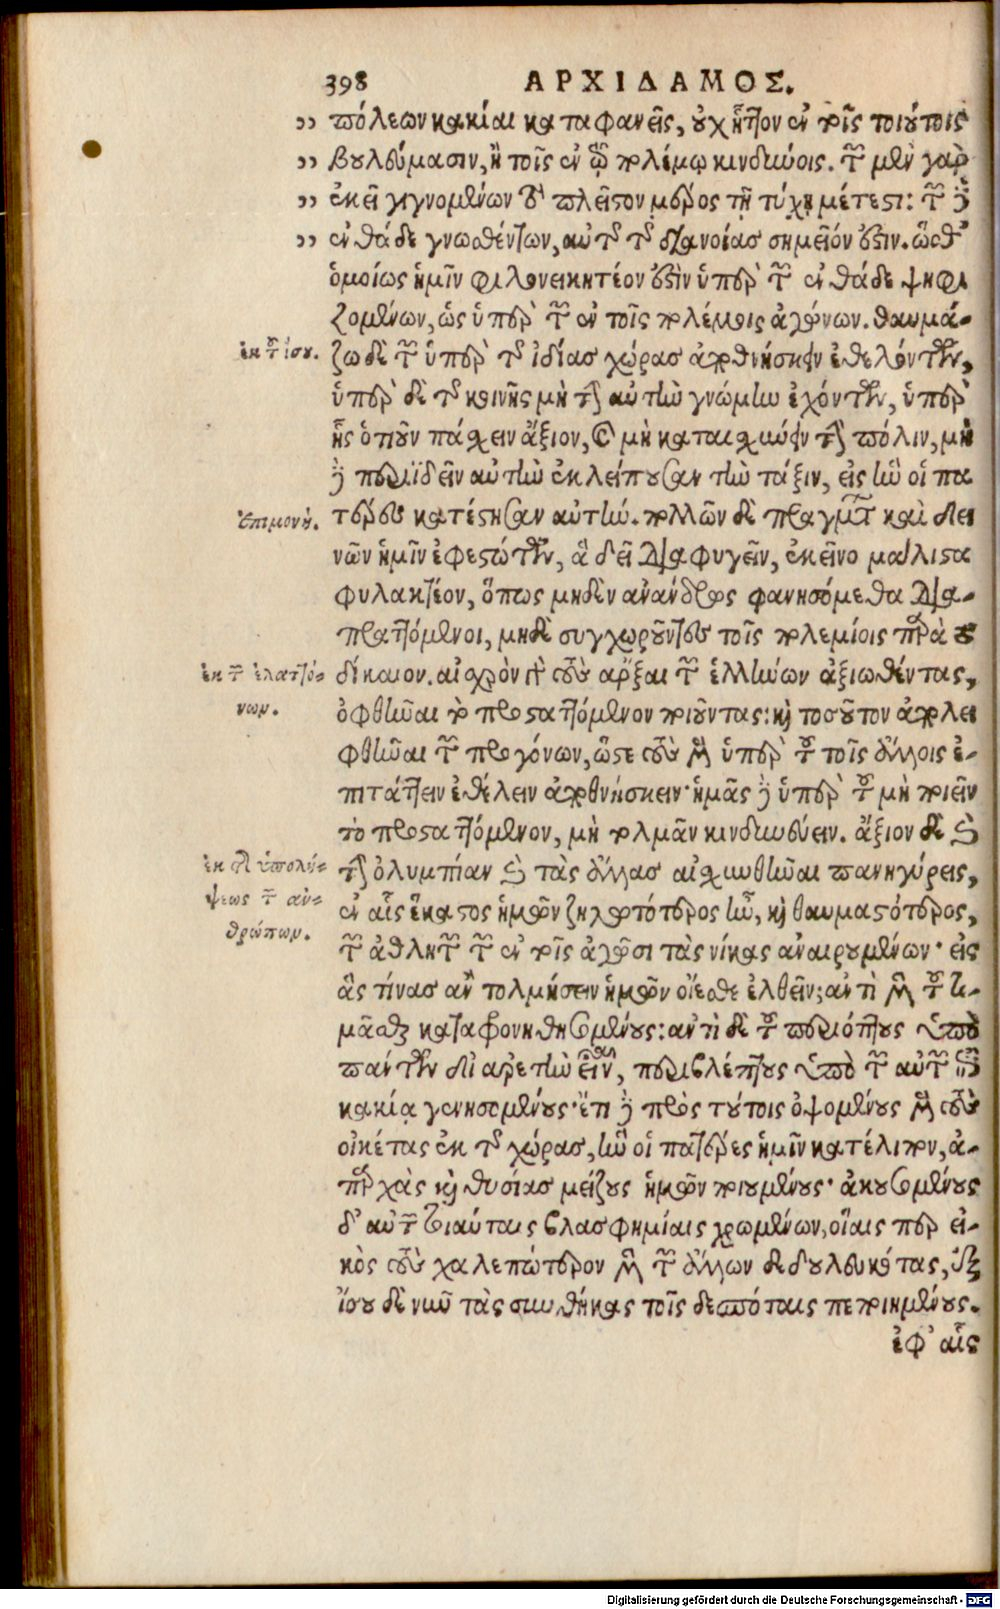 398
ΑΡΧΙΔΑΜΟΣ.
πόλεων κακίαι καταφανεῖς, οὐχ ἧττον ἐν τοῖς τοιούτοις
βουλεύμασιν, ἢ τοῖς ἐν τῷ πολέμῳ κινδύνοις. τῶν μὲν γὰρ
ἐκεῖ γιγνομένων τὸ πλεῖστον μέρος τῇ τύχῃ μέτεστι: τῶν δ'
ἐνθάδε γνωσθέντων, αὐτῆς τῆς διανοίας σημεῖόν ἐστιν. ὥσθ'
ὁμοίως ἡμῖν φιλονεικητέον ἐστὶν ὑπὲρ τῶν ἐνθάδε ψηφι
ζομένων, ὡς ὑπὲρ τῶν ἐν τοῖς πολέμοις ἀγώνων. θαυμά-
ἐκ τοῦ ἴσου.
ζω δὲ τῶν ὑπὲρ τῆς ἰδίας χώρας ἀποθνήσκειν ἐθελόντων,
ὑπὲρ δὲ τῆς κοινῆς μὴ τὴν αὐτὴν γνώμην ἐχόντων, ὑπὲρ
ἧς ὁτιοῦν πάσχειν ἄξιον, καὶ μὴ καταισχύνειν τὴν πόλιν, μηδὲ
περιϊδεῖν αὐτὴν ἐκλείπουσαν τὴν τάξιν, εἰς ἣν οἱ πα
Ἐπιμονή.
τέρες κατέστησαν αὐτήν. πολλῶν δὲ πραγμάτων καὶ δει
νῶν ἡμῖν ἐφεστώτων, ἃ δεῖ διαφυγεῖν, ἐκεῖνο μάλιστα
φυλακτέον, ὅπως μηδὲν ἀνάνδρως φανησόμεθα δια-
πραττόμενοι, μηδὲ συγχωροῦντες τοῖς πολεμίοις παρὰ τὸ
ἐκ τῶν ἐλαττό-
νων.
δίκαιον. αἰσχρὸν γὰρ τοὺς ἄρξαι τῶν ἑλλήνων ἀξιωθέντας,
ὀφθῆναι τὸ προσταττόμενον ποιοῦντας: καὶ τοσοῦτον ἀπολει
φθῆναι τῶν προγόνων, ὥστε τοὺς μὲν ὑπὲρ τοῦ τοῖς ἄλλοις ἐ-
πιτάττειν ἐθέλειν ἀποθνήσκειν· ἡμᾶς δὲ ὑπὲρ τοῦ μὴ ποιεῖν
τὸ προσταττόμενον, μὴ τολμᾶν κινδυνεύειν. ἄξιον δὲ καὶ
ἐκ τῆς ὑπολή-
ψεως τῶν ἀν-
θρώπων.
τὴν ὀλυμπίαν καὶ τὰς ἄλλας αἰσχυνθῆναι πανηγύρεις,
ἐν αἷς ἕκαστος ἡμῶν ζηλωτότερος ἦν, καὶ θαυμαστότερος,
τῶν ἀθλητῶν τῶν ἐν τοῖς ἀγῶσι τὰς νίκας ἀναιρουμένων· εἰς
ἃς τίνας ἂν τολμήσειν ἡμῶν οἴεσθε ἐλθεῖν; ἀντὶ μὲν τοῦ τι-
μᾶσθαι καταφρονηθησομένους: ἀντὶ δὲ τοῦ περιόπτους ὑπὸ
πάντων δι' ἀρετὴν εἶναι, περιβλέπτους ὑπὸ τῶν αὐτῶν ἐπὶ
κακίᾳ γενησομένους· ἔτι δὲ πρὸς τούτοις ὀψομένους μὲν τοὺς
οἰκέτας ἐκ τῆς χώρας, ἣν οἱ πατέρες ἡμῖν κατέλιπον, ἀ-
παρχὰς καὶ θυσίας μείζους ἡμῶν ποιουμένους· ἀκουσομένους
δ' αὐτῶν τοιαύταις βλασφημίαις χρωμένων, οἵαις περ εἰ-
κὸς τοὺς χαλεπώτερον μὲν τῶν ἄλλων δεδουλευκότας, ἐξ
ἴσου δὲ νῦν τὰς συνθήκας τοῖς δεσπόταις πεποιημένους.
ἐφ' αἷς
Digitalisierung gefördert durch die Deutsche Forschungsgemeinschaft - DFG